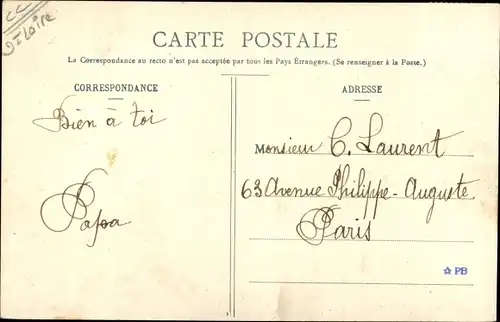 CARTE POSTALE
La Correspondance au recto n'est pas acceptée par tous les Pays Étrangers. (Se renseigner à la Poste.)
CORRESPONDANCE
Bien à toi
Papa
ADRESSE
Monsieur C. Laurent
63 Avenue Philippe-Auguste
Paris
PB